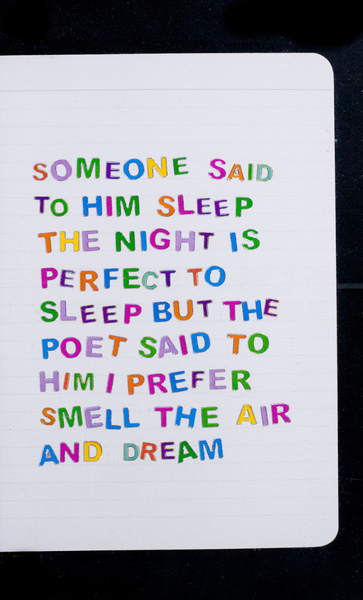 SOMEONE SAID
TO HIM SLEEP
THE NIGHT IS
PERFECT TO
SLEEP BUT THE
POET SAID TO
HIM I PREFER
SMELL THE AIR
AND DREAM